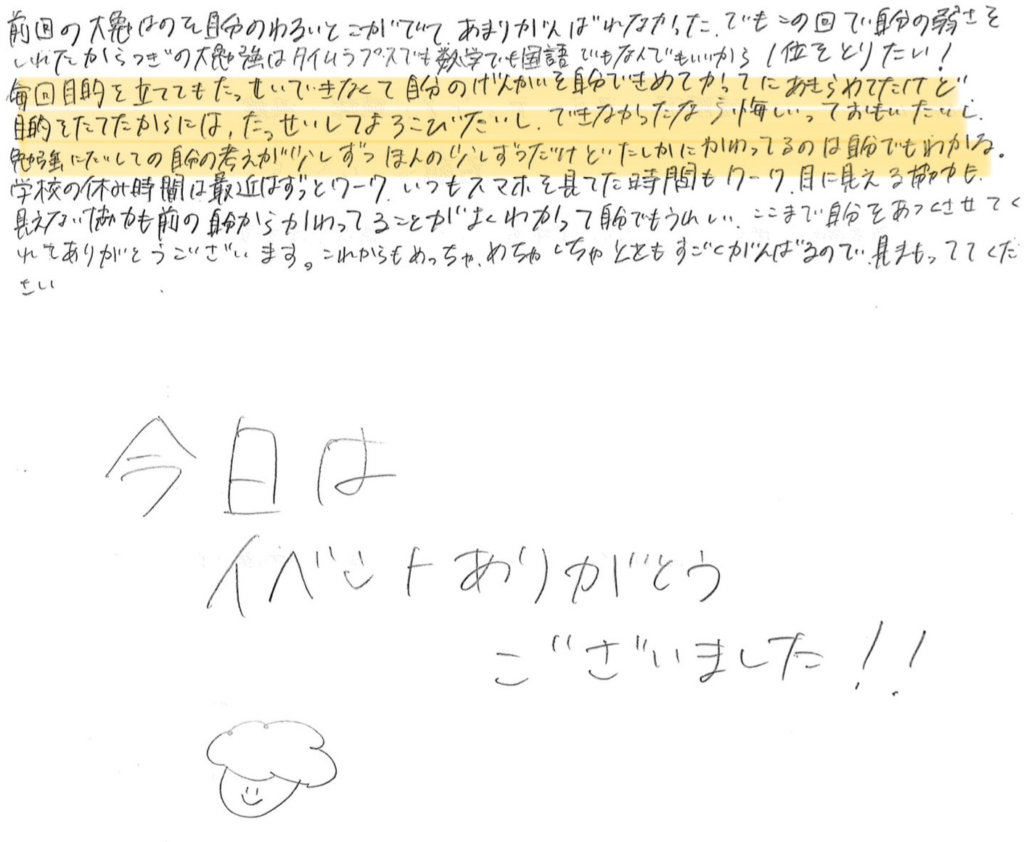 前回の大勉はのそ自分のわるいとこがでて、あまりがんばれなかった。でもこの回で自分の弱さを
しれたからつぎの大勉強はタイムラプスでも数学でも国語でもなんでもいいから1位をとりたい!
毎回目的を立ててもたっせいできなくて自分のげんかいを自分できめてかってにあきらめてたけど
目的をたてたからには、たっせいしてよろこびたいし、できなかったなら悔しいっておもいたいし、
勉強にたいしての自分の考えが少しずつほんの少しずつだけどたしかにかわってるのは自分でもわかる。
学校の休み時間は最近はずっとワーク、いつもスマホを見てた時間もワーク、目に見える協力も、
見えない協力も前の自分からかわってることがよくわかって自分でもうれしい、ここまで自分をあつくさせてく
れてありがとうございます。これからもめっちゃ、めちゃくちゃとてもすごくがんばるので、見まもっててくだ
さい
今日は
イベントありがとう
ございました!!